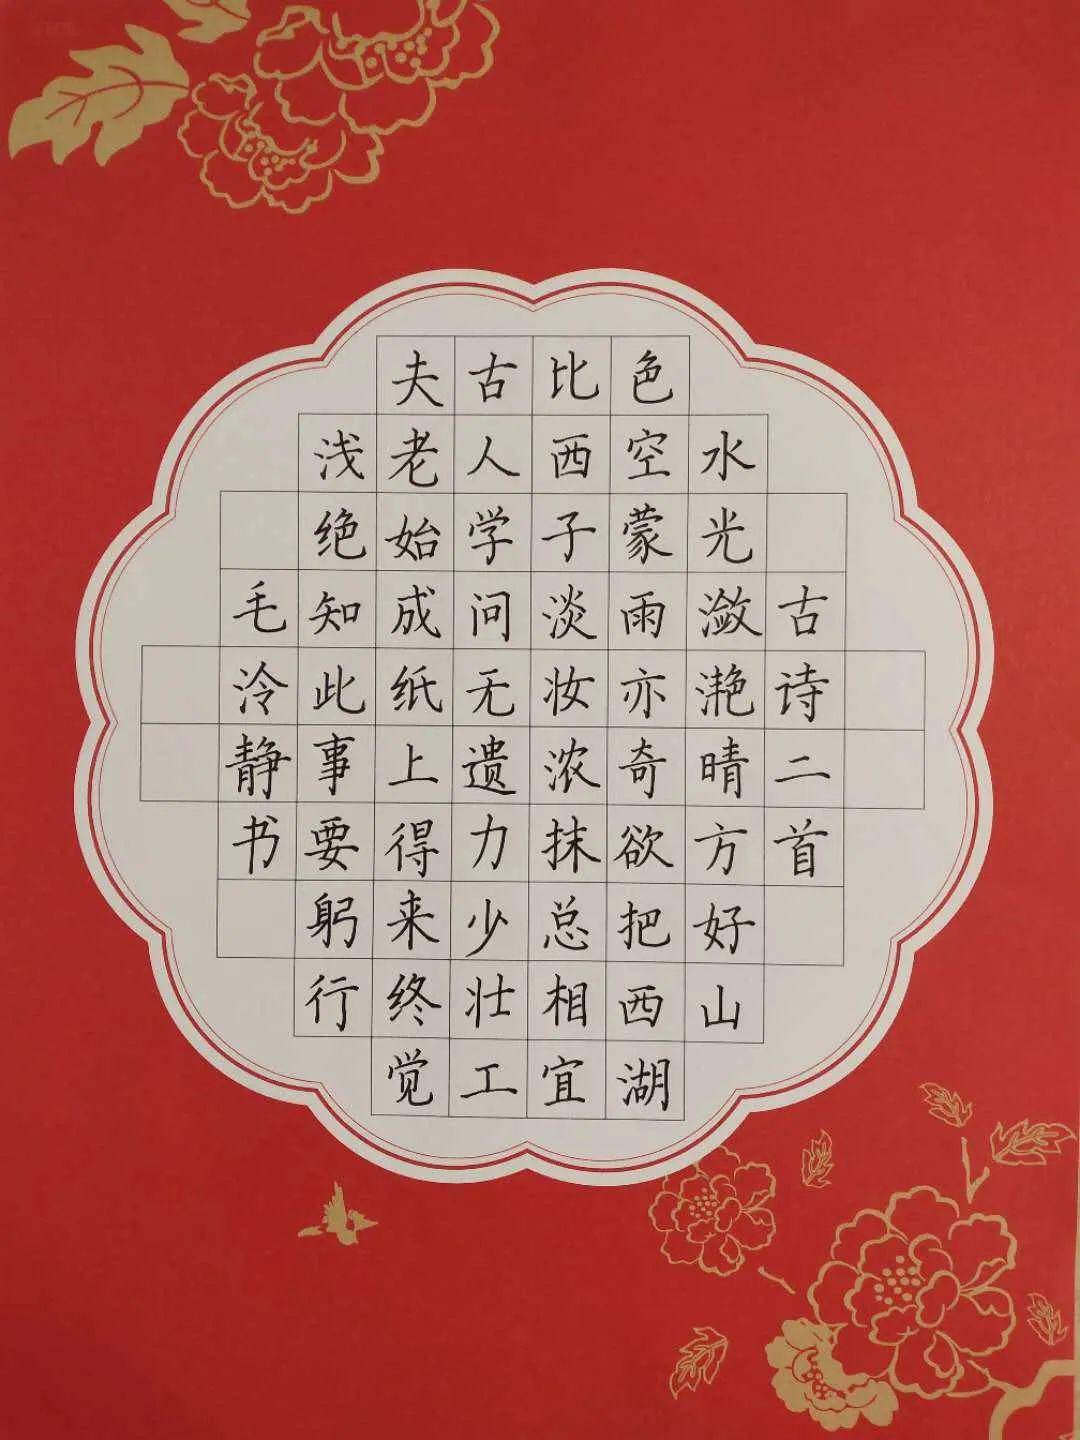 古诗二首
水光潋滟晴方好山
色空蒙雨亦奇欲把西湖
比西子淡妆浓抹总相宜
古人学问无遗力少壮工
夫老始成纸上得来终觉
浅绝知此事要躬行
毛泠静书